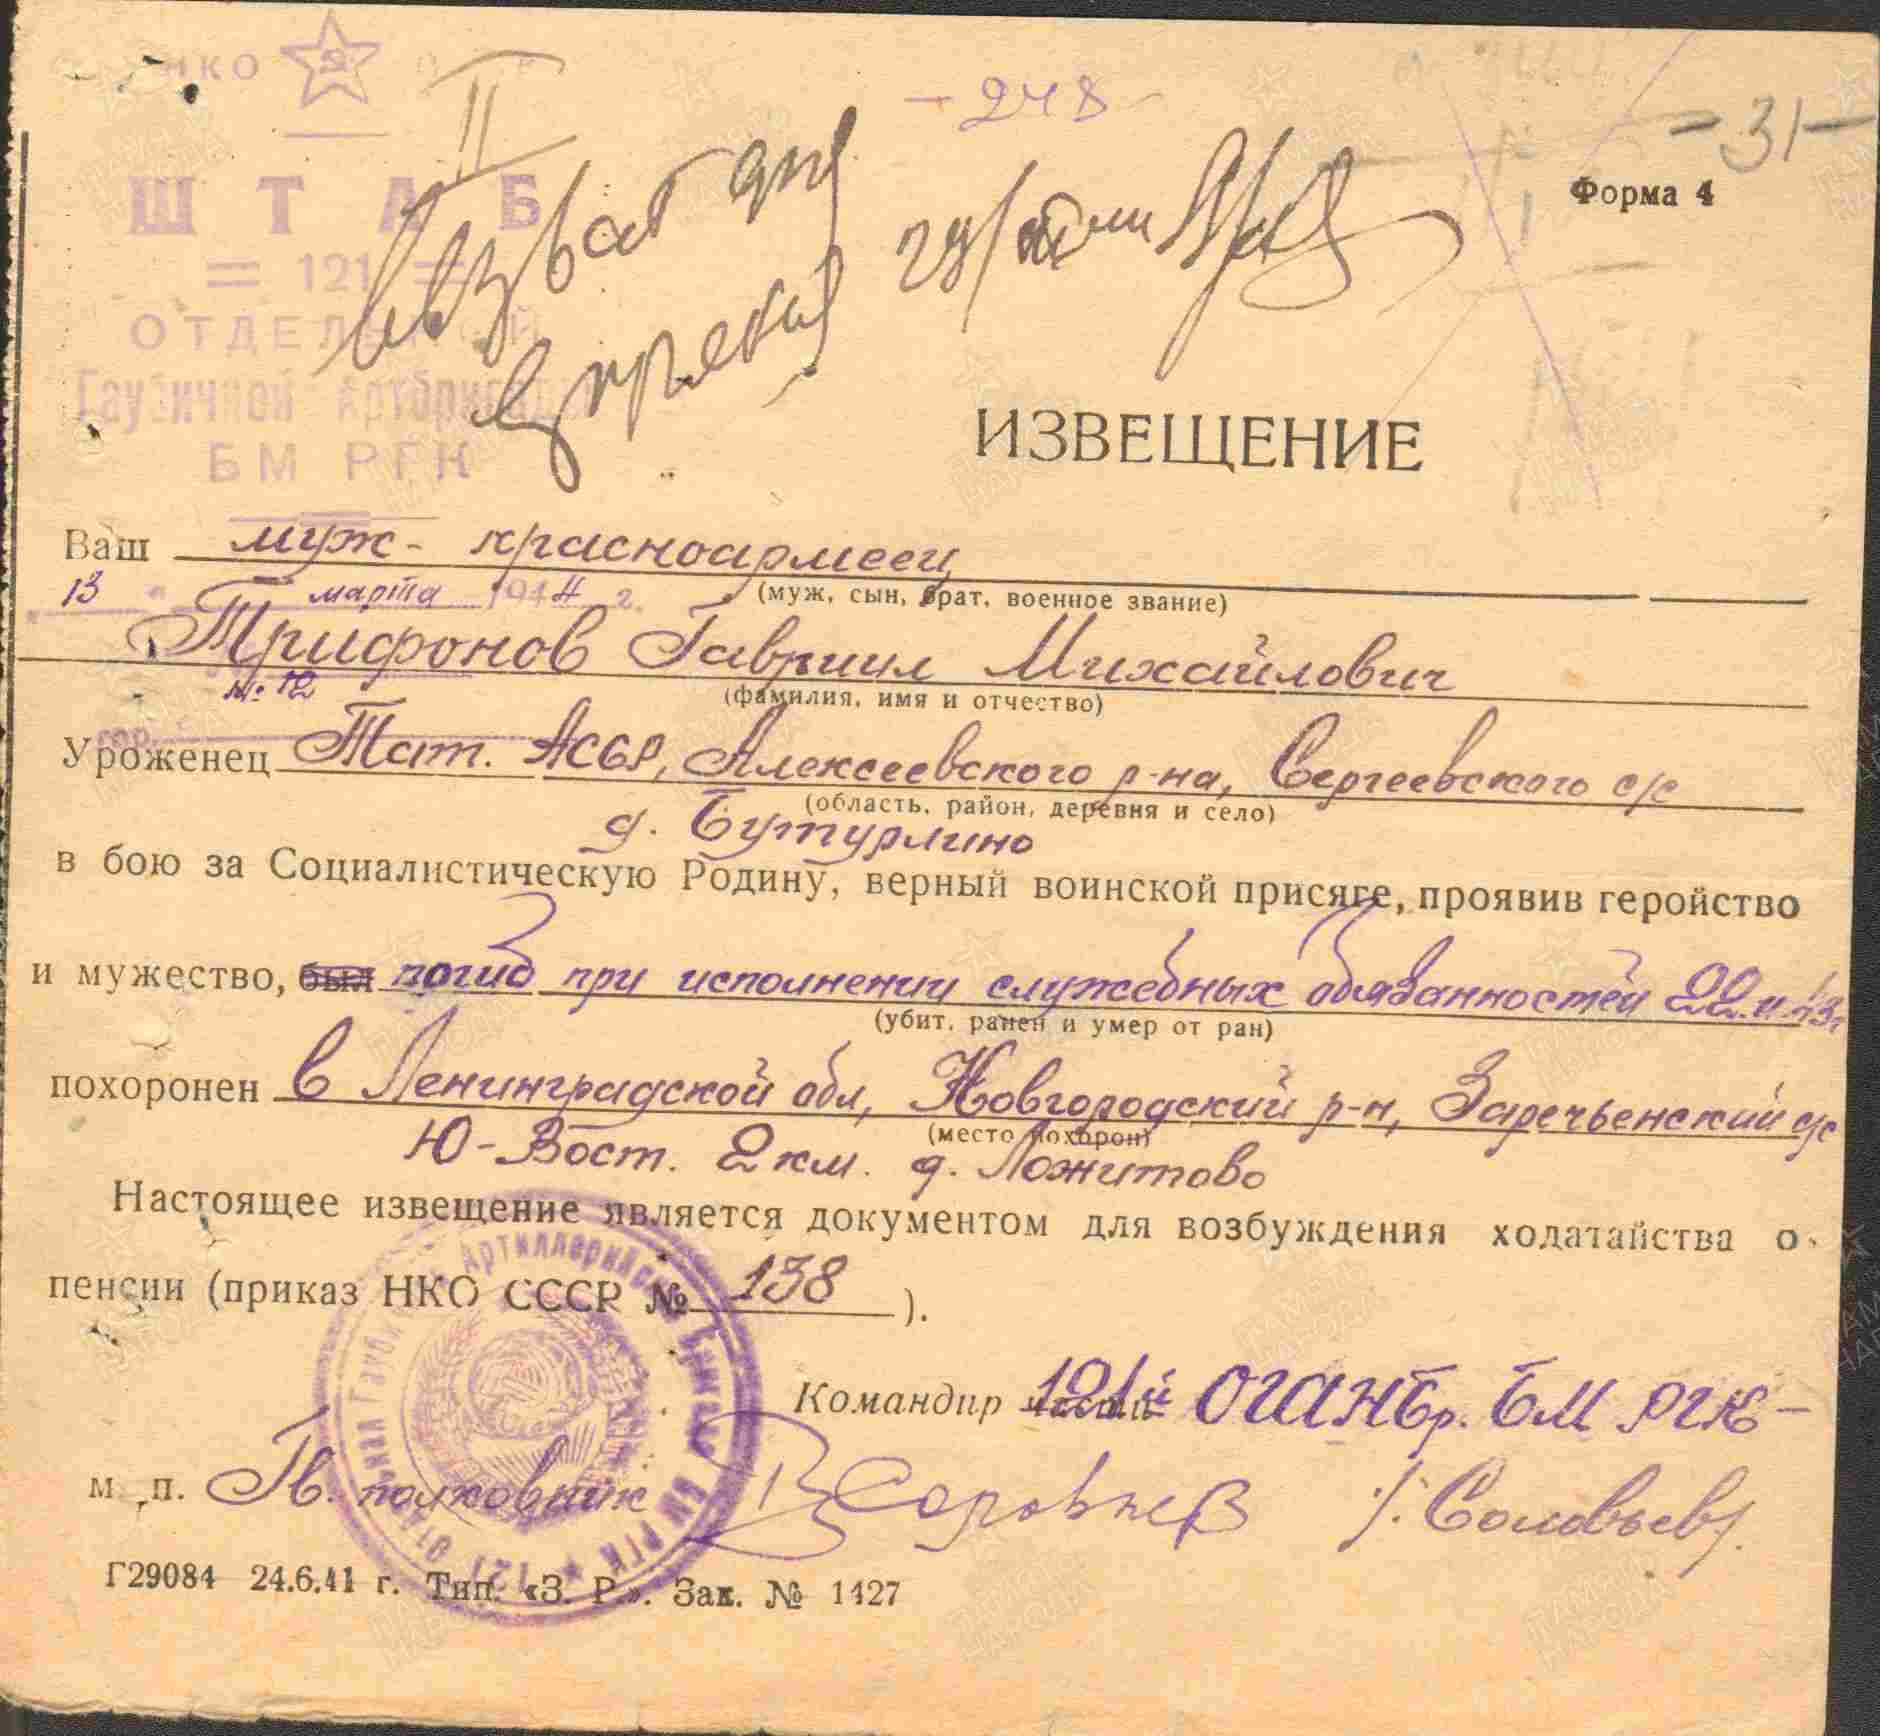 НКО
- 248 -
II
- 31 -
Форма 4
ШТАБ
= 121 =
ОТДЕЛЬНОЙ
Гаубичной Артбригады
БМ РГК
ИЗВЕЩЕНИЕ
Ваш муж - красноармеец
(муж, сын, брат, военное звание)
"13" марта 1944 г.
Трифонов Гавриил Михайлович
(фамилия, имя и отчество)
№ 12
гор.
Уроженец Тат. АССР, Алексеевского р-на, Сергеевского с/с
(область, район, деревня и село)
д. Бутурлино
в бою за Социалистическую Родину, верный воинской присяге, проявив геройство
и мужество, был погиб при исполнении служебных обязанностей 22.
(убит, ранен и умер от ран)
похоронен в Ленинградской обл, Новгородский р-н, Заречьенский с/с
(место похорон)
Ю-Вост. 2 км. д. Ложитово
Настоящее извещение является документом для возбуждения ходатайства о
пенсии (приказ НКО СССР № 138 ).
Командир части 121й ОГАНБр. БМ РГК -
м. п. Гв. полковник Соловьев /Соловьев/.
121 Отдельная Гаубичная Артиллерийская Бригада БМ РГК
Г29084 24.6.41 г. Тип. «З. Р.». Зак. № 1427